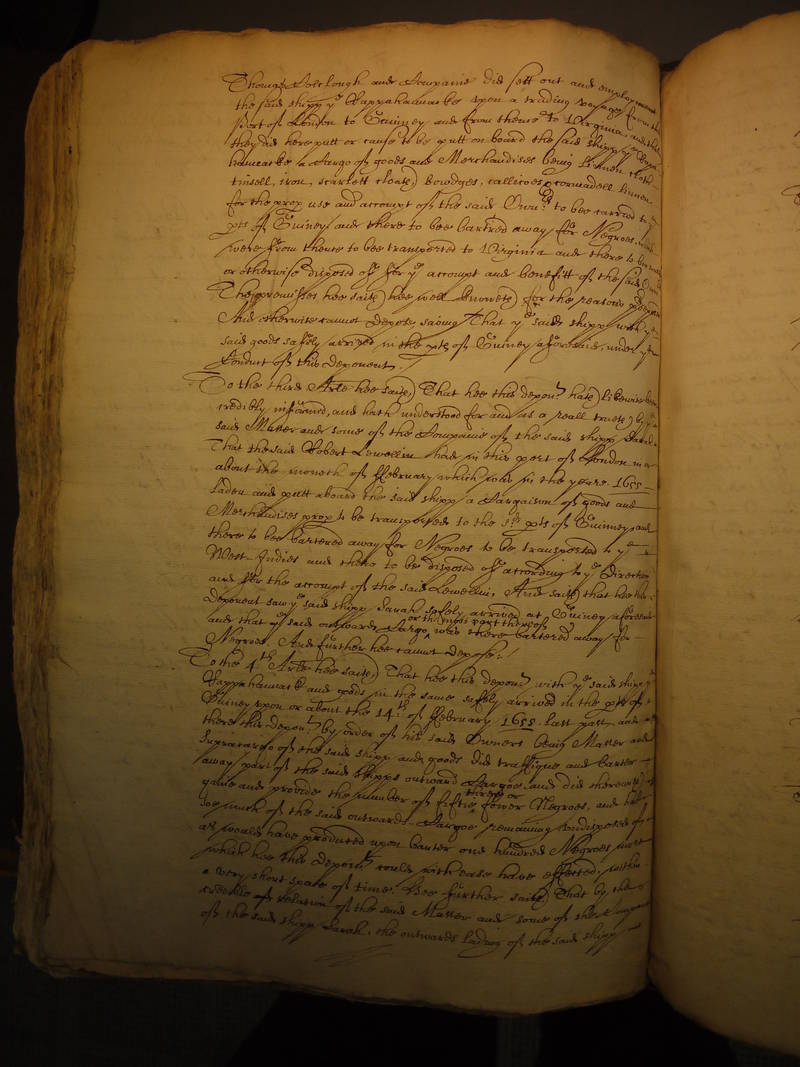 Thomas Colclough and Companie did sett out and employ
the said shipp ye Rappahannacke upon a trading voyage from the
Port of London to Guinney and from thence to Virginia, and that
they did here putt or cause to be putt on board the said shipp ye Rappa-
hannacke a Cargo of goods and Merchandises being Linnen cloth
tinsell, iron, scarlett cloath Bowdges, callicoes Cormadell linnen
for the prop use and accompt of the said Owners to bee carried to ye
pts of Guiney and there to bee bartred away for Negroes, which
were from thence to bee transported to Virginia and there to be
or otherwise disposed of for ye accompt and benefitt of the said
The premisses hee saith hee well knoweth for the reasons
And otherwise cannot depose, saving That ye said shipp with ye
said goods safely arrived in the pts of Guiney aforesaid, under ye
Conduct of this deponent.
To the third Arle hee saith That hee this depont hath likewise been
credibly informed, and hath understood for and as a reall trueth by ye
said Master and some of the Companie of the said shipp Sarah
That the said Robert Lewellin had in this port of London in or
about the moneth of ffebruary which was in the yeare 1655
laden and putt aboard the said shipp a Cargaison of goods and
Merchandises prop to be transported to the sd pts of Guinney and
there to bee bartered away for Negroes to be transported to ye
West-Indies and there to be disposed of according to ye Direction
and for the accompt of the said Lewellin, And saith that hee this
deponent saw ye said shipp Sarah safely arrived at Guiney aforesaid
and that ye said outwards Cargo or the most part thereof was there bartered away for
Negroes. And further hee cannot depose.
To the 4th Arle hee saith That hee this deponent with ye said shipp ye
Rappahannack and goods in the same safely arrived in the pts of
Guiney upon or about the 14th of ffebruary 1655 last past, and
there this deponent by order of his said Owners being Master and
Supracargo of the said shipp and goods did traffique and barter
away part of the said shipps outward Cargoe, and did therewith
gaine and provide the number of fiftie three or fower Negroes, and had
soe much of the said outwards Cargoe remaining undisposed of
as would have produced upon barter one hundred Negroes more
which hee this deponent could with ease have effected, within
a very short space of time. Hee further saith That by the
credible relation of the said Master and some of the Company
of the said shipp Sarah, the outwards lading of the said shipp